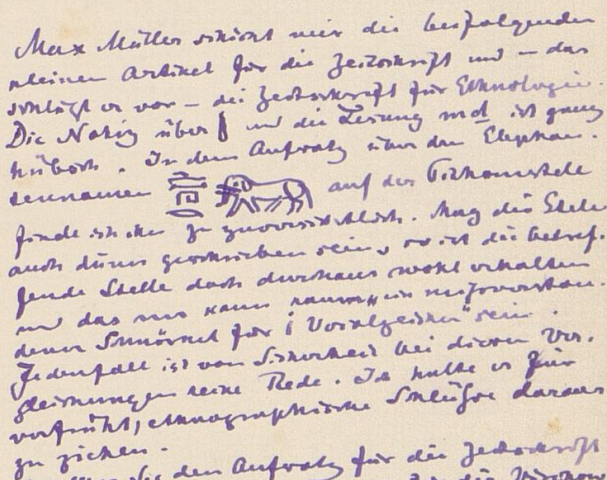 Max Müller schickt mir die beifolgenden
kleinen Artikel für die Zeitschrift und – das
schlägt er vor – die Zeitschrift für Ethnologie.
Die Notiz über und die Lesung md ist ganz
hübsch. In dem Aufsatz über den Elephan-
tennamen auf der Stele
finde ich ihn zu zuversichtlich. Mag die Stele
auch dünn geschrieben sein, so ist die betref-
fende Stelle doch durchaus wohl erhalten
und das kann kaum „ein missverstan-
dener Schnörkel für i Vocalzeichen“ sein.
Jedenfalls ist von Sicherheit bei diesen Ver-
gleichungen keine Rede. Ich halte es für
verfrüht, ethnographische Schlüsse daraus
zu ziehen.
den Aufsatz für die Zeitschrift